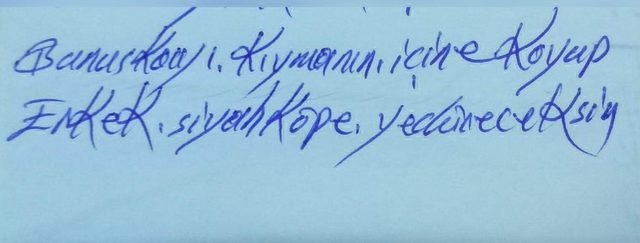 Bunuskayı. Kıymanın. içine Koyup
ErKeK. siyah Köpe. yedireceKsin